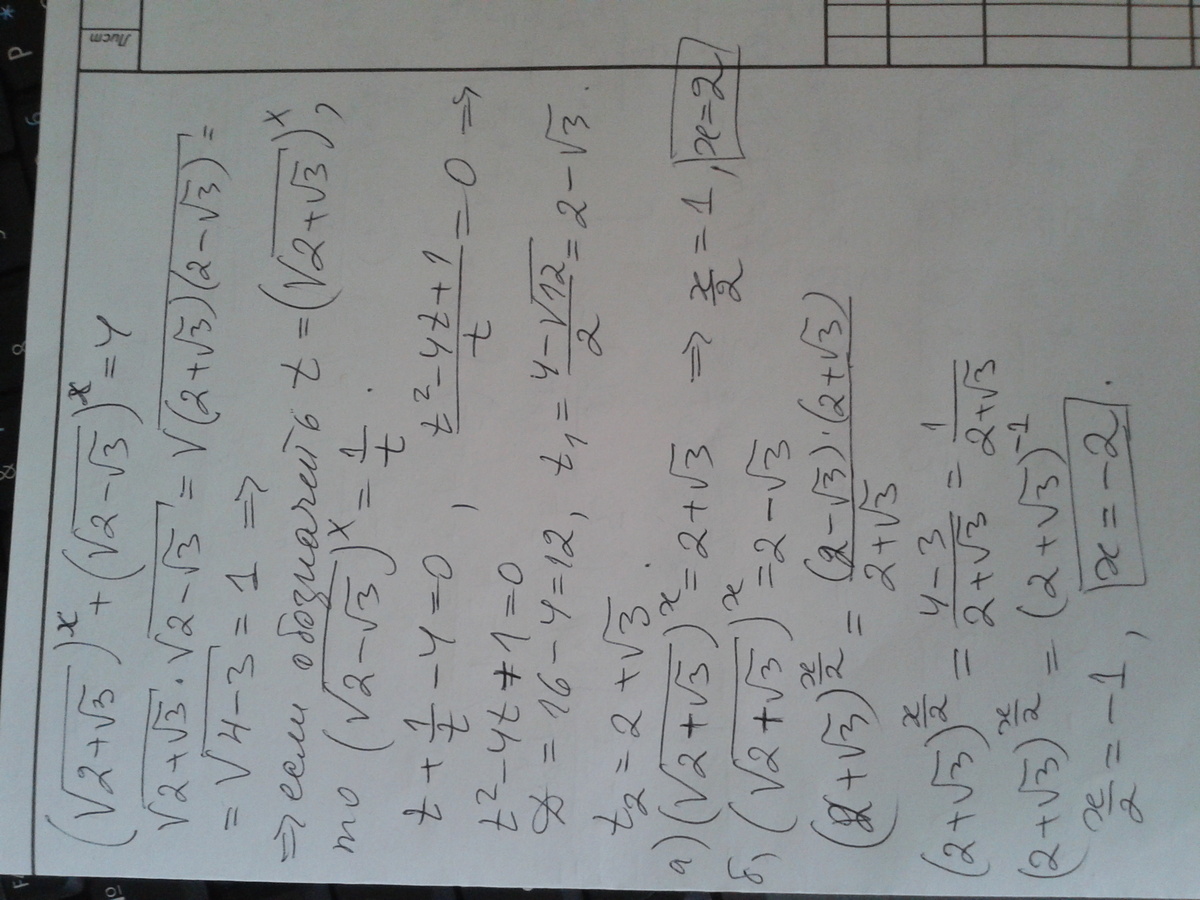 Лист
(√(2+√3))^x + (√(2-√3))^x = 4
√(2+√3) · √(2-√3) = √((2+√3)(2-√3)) =
= √(4-3) = 1 ⇒
⇒ если обозначить t = (√(2+√3))^x,
то (√(2-√3))^x = 1/t.
t + 1/t - 4 = 0, (t² - 4t + 1)/t = 0 ⇒
t² - 4t + 1 = 0
D = 16 - 4 = 12, t₁ = (4 - √12)/2 = 2 - √3.
t₂ = 2 + √3.
а) (√(2+√3))^x = 2 + √3 ⇒ x/2 = 1, x = 2
б) (√(2+√3))^x = 2 - √3
(2+√3)^(x/2) = ((2-√3)·(2+√3))/(2+√3)
(2+√3)^(x/2) = (4-3)/(2+√3) = 1/(2+√3)
(2+√3)^(x/2) = (2+√3)^(-1)
x/2 = -1, x = -2.